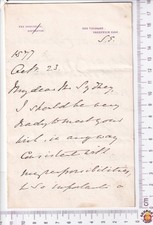 THE VICARAGE,
1877
Oct. 23.
My dear Mr Sydney
I should be very
ready to meet your
wish in any way
consistent with
my responsibilities
in so important a